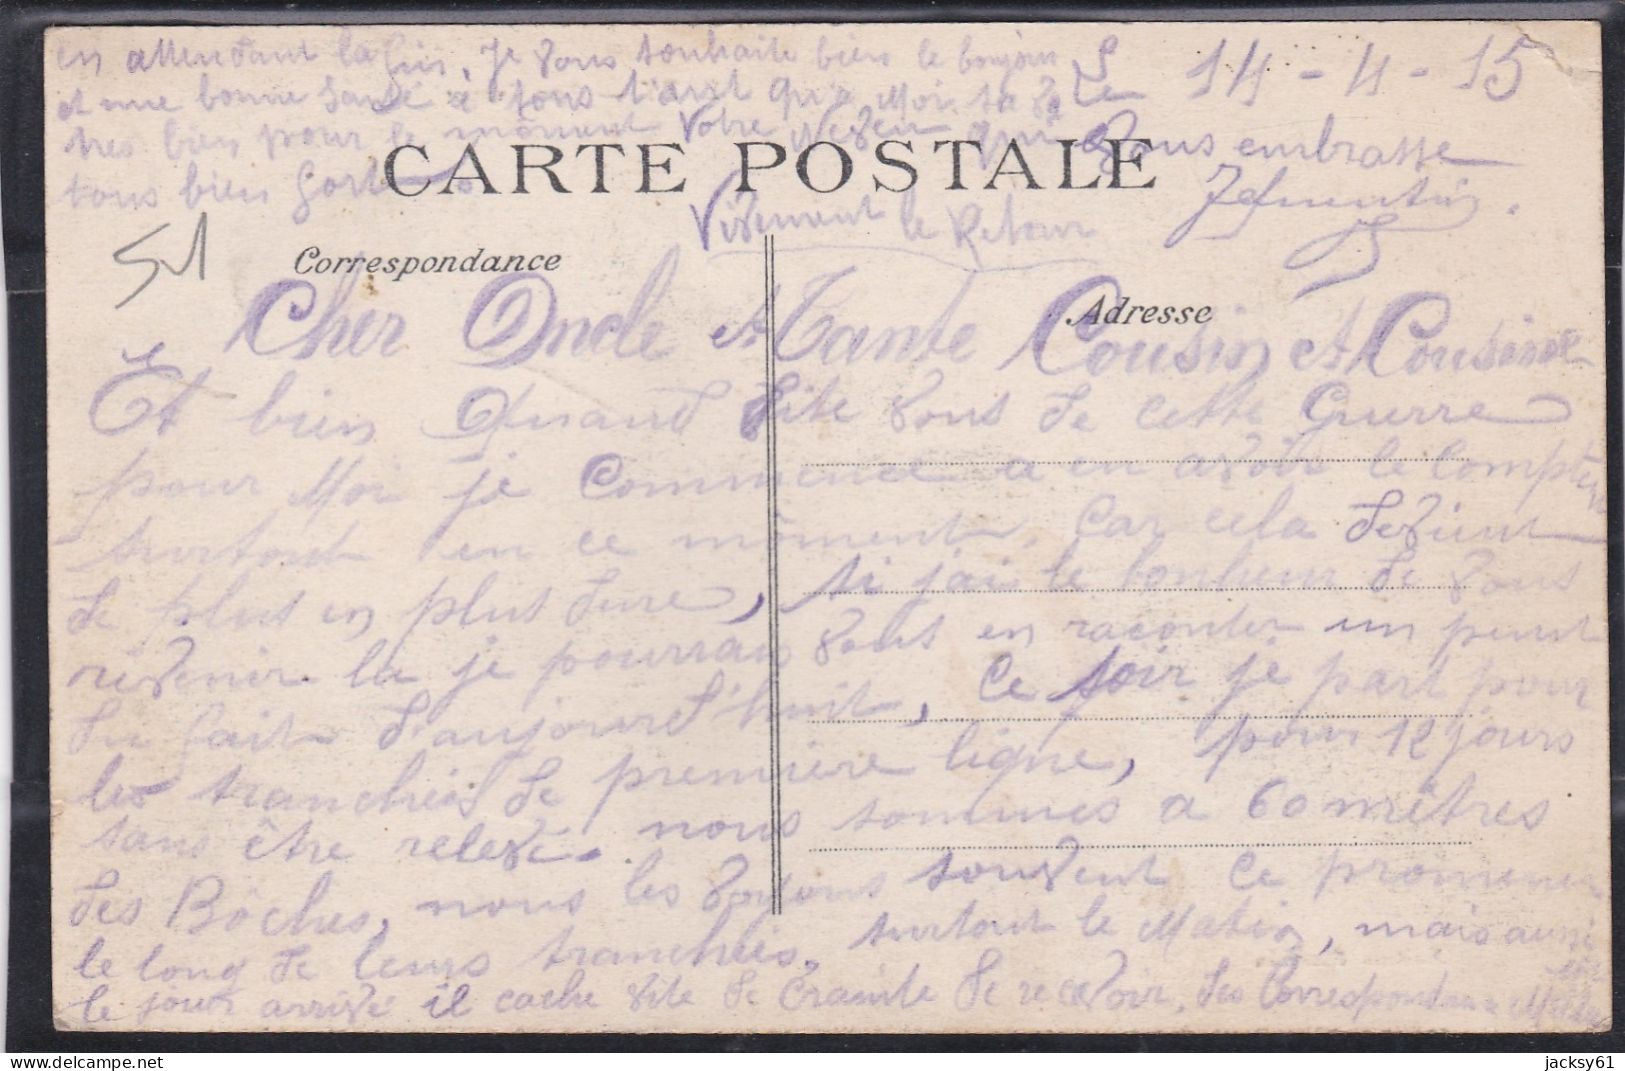 en attendant la fin. Je vous souhaite bien le bonjour
et une bonne santé à tous tant qu'a Moi sa va
tres bien pour le môment Votre Neveu qui
tous bien fort
Le 14-4-15
Vous embrasse
CARTE POSTALE
Vivement le Retour
51
Correspondance
Adresse
Cher Oncle et Tante Cousin et Cousine
Et bien Quand dite vous de cette Guerre
pour Moi je commence a en avoir le compte
surtout en ce môment, car cela devient
de plus en plus dure, si j'ai le bonheur de vous
révenir la je pourrais vous en raconter un peut
du fait d'aujourd'huit, Ce soir je part pour
les tranchéis de premiere ligne, pour 12 jours
sans être relevé. nous sommes a 60 mêtres
des Bôches, nous les voyons souvent ce promener
le long de leurs tranchéis, surtout le Matin, mais aussi
le jour arrivé il cache vite de crainte de recevoir des Correspondance
jacksy61